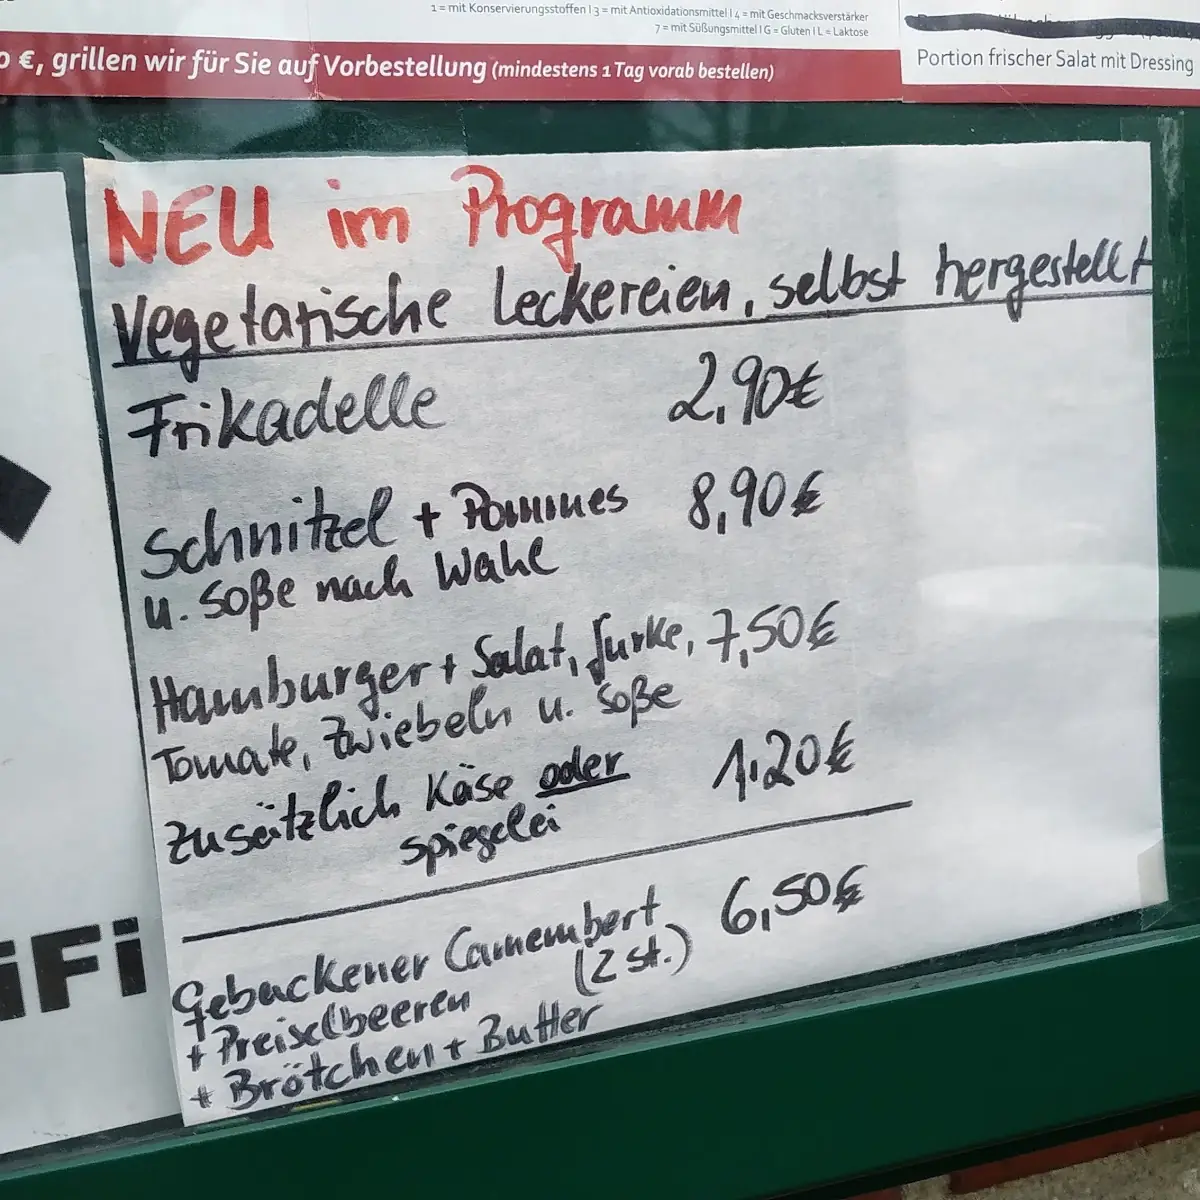 1 = mit Konservierungsstoffen I 3 = mit Antioxidationsmittel I 4 = mit Geschmacksverstärker
7 = mit Süßungsmittel I G = Gluten I L = Laktose
€, grillen wir für Sie auf Vorbestellung (mindestens 1 Tag vorab bestellen)
Portion frischer Salat mit Dressing
NEU im Programm
Vegetarische Leckereien, selbst hergestellt
Frikadelle 2,90€
Schnitzel + Pommes 8,90€
u. Soße nach Wahl
Hamburger + Salat, Gurke, 7,50€
Tomate, Zwiebeln u. Soße
Zusätzlich Käse oder 1.20€
Spiegelei
Gebackener Camembert 6,50€
(2 St.)
+ Preiselbeeren
+ Brötchen + Butter
iFi